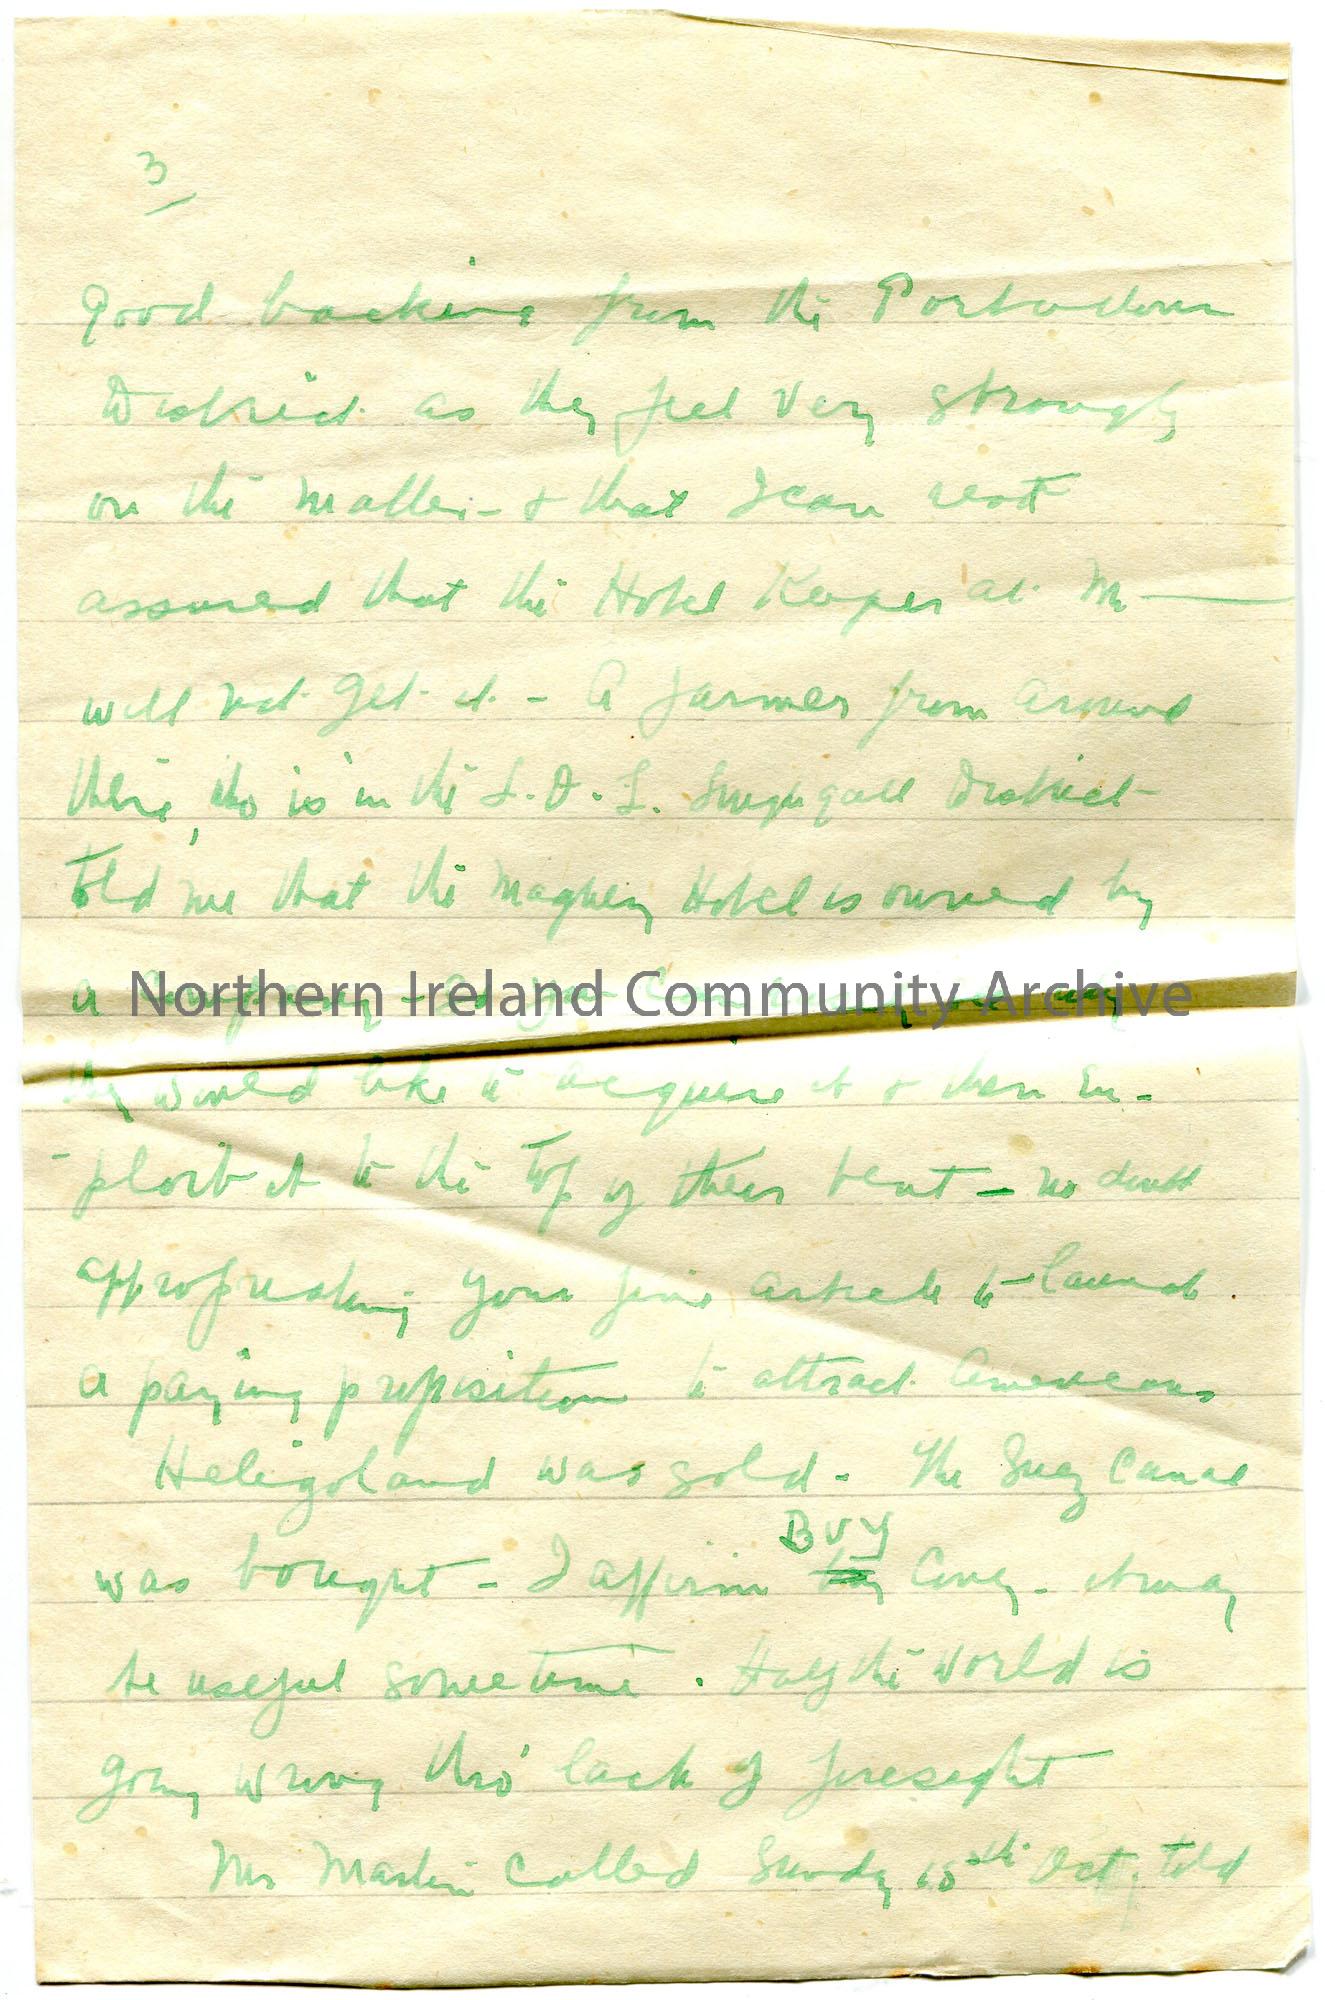 3
Good backing from the Portadown
District as they feel very strongly
on the matter - & that I can rest
assured that the Hotel Keeper at M—
will not get it - A farmer from around
there, who is in the L.O.L. District
told me that the Maghery Hotel is owned by
a Company - you can
they would like to acquire it & then ex-
-ploit it to the top of their bent - no doubt
appropriating your fine article to launch
a paying proposition to attract Americans
Heligoland was sold - The Suez Canal
was bought - I affirm BUY Coney - it may
be useful some time. Half the world is
going wrong thro' lack of foresight
Mr Martin called Sunday 15th Oct, told
Northern Ireland Community Archive